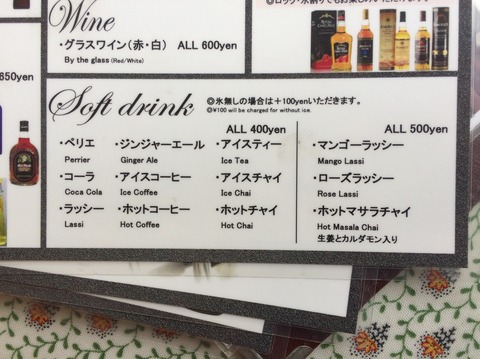 ◎ロック・水割りでもお楽しみいただけます。
Wine
・グラスワイン(赤・白) ALL 600yen
By the glass (Red/White)
650yen
Soft drink
◎氷無しの場合は+100yenいただきます。
◎¥100 will be charged for without ice.
ALL 400yen
・ペリエ ・ジンジャーエール ・アイスティー
Perrier Ginger Ale Ice Tea
・コーラ ・アイスコーヒー ・アイスチャイ
Coca Cola Ice Coffee Ice Chai
・ラッシー ・ホットコーヒー ・ホットチャイ
Lassi Hot Coffee Hot Chai
ALL 500yen
・マンゴーラッシー
Mango Lassi
・ローズラッシー
Rose Lassi
・ホットマサラチャイ
Hot Masala Chai
生姜とカルダモン入り